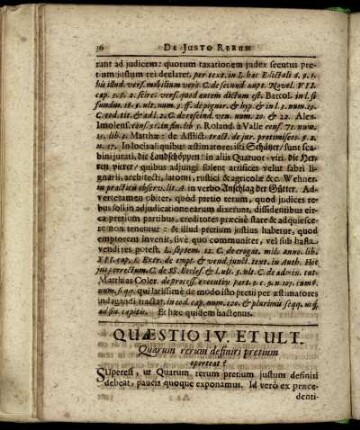 36 DE JUSTO RERUM
rant ad judicem: quorum taxationem judex secutus pre-
tium justum rei declaret, per text. in l. hac Edictali 6. §. 1.
his illud. vers. mobilium vers. C. de secund. nupt. Novel. VII.
cap. 5. §. 2. scire. vers. quod autem dictum est. Bartol. in l. si
fundus 16. §. ult. num. 3. ff. de pignor. & hyp. & in l. 3. num. 19.
C. eod. tit. & ad l. 2. C. de rescind. ven. num. 20. & 22. Alex.
Imolens. Roland. à Valle conf. 71. num.
lib. 2. Matthæ: de Afflict. tract. de jur. protimiseos. §. 2.
n. 17. In locis aliquibus æstimatores isti Schätzer/ sunt sca-
bini jurati, die Landschöppen: in aliis Quatuor-viri, die Her-
ren vierer/ quibus adjungi solent artifices velut fabri li-
gnarii, architecti, latomi, rustici & agricolæ &c. Wehner.
in practicis observ. lit. A. in verbo Anschlag der Gütter. Ad-
vertetamen obiter, quòd pretio rerum, quod judices re-
bus solis in adjudicatione earum dixerunt, dissidentibus cir-
ca pretium partibus, creditores præcisè stare & adquiesce-
re non teneantur: & illud pretium justius haberur, quod
emptorem invenit, sivè quo communiter, vel sub hasta
vendi res potest. L. septem. 12. C. de erogat. mil. ann. lib.
XII. cap. 1. Extr. de empt. & vend. junct. text. in Auth. Hoc
jus correctum. C. de SS. Eccles. & l. ult. §. ult. C. de admin. tut.
Matthias Coler. de process. executiv. part. 2. c. 3. n. 105. cum
num. seqq. qui latissimè de modo isto pretii per æstimatores
indagandi tractat. in eod. cap. num. 120. & plurimis seqq. usq.
ad fin. capitis. Et hæc quidem hactenus.
QUÆSTIO IV. ET ULT.
Quarum rerum definiri pretium
oporteat?
SUperest, ut Quarum rerum pretium justum definiri
debeat, paucis quoque exponamus. Id verò ex præce-
denti-